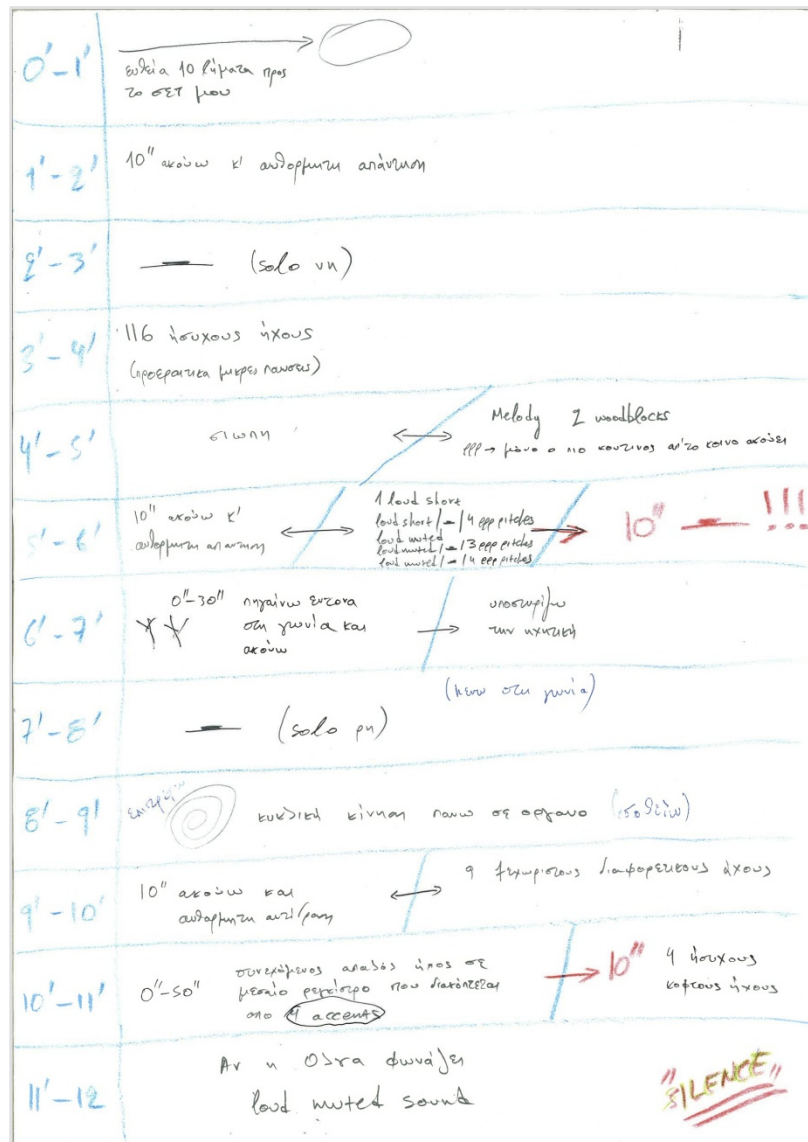 0'-1'
ευθεία 10 βήματα προς
το σετ μου
1'-2'
10" ακούω κ' αυθόρμητη απάντηση
2'-3'
(solo vn)
3'-4'
116 ήσυχους ήχους
(προερατικα μικρες παυσεις)
4'-5'
σιωπη
Melody 2 woodblocks
ppp → μόνο ο πιο κοντινος απ'το κοινο ακούει
5'-6'
10" ακούω κ'
αυθόρμητη απαντηση
1 loud short
loud short / - / 4 ppp pitches
loud muted
loud muted / - / 3 ppp pitches
loud muted / - / 4 ppp pitches
10" - !!!
6'-7'
0"-30" πηγαίνω εντονα
στη γωνία και
ακούω
υποστηρίζω
την ηχητική
(μενω στη γωνία)
7'-8'
(solo ρη)
8'-9'
επιστρέφω
κυκλική κίνηση πανω σε οργανο
9'-10'
10" ακούω και
αυθόρμητη αντίδραση
9 ξεχωριστους διαφορετικους ήχους
10'-11'
0"-50"
συνεχόμενος απαλός ήχος σε
μεσαίο ρεγκίστρο που διακόπτεται
απο 4 accents
10"
4 ήσυχους
κοφτους ήχους
11'-12
Αν η Ολγα φωνάζει
loud muted sound
"SILENCE"